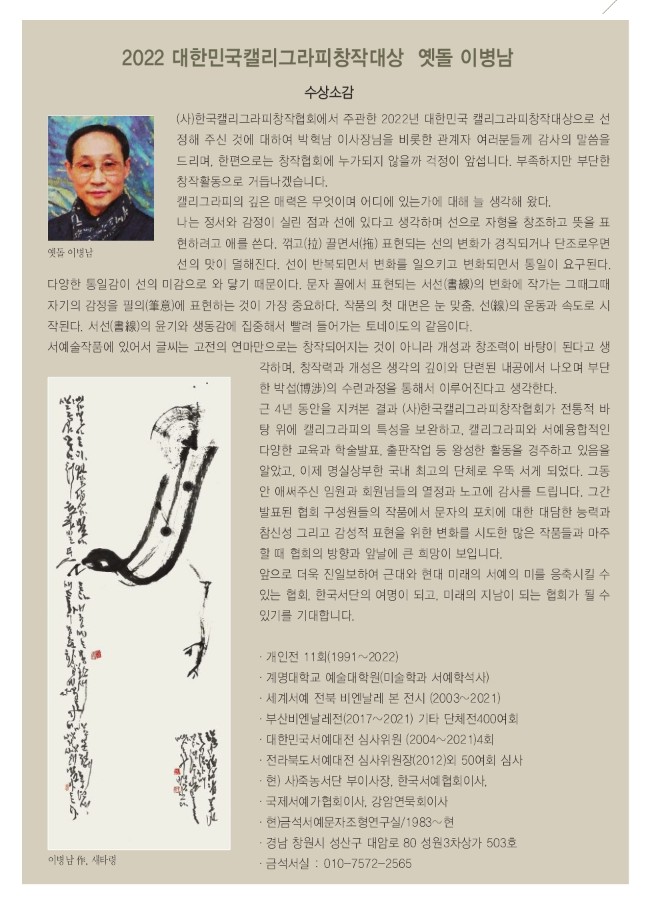 2022 대한민국캘리그라피창작대상 옛돌 이병남
수상소감
(사)한국캘리그라피창작협회에서 주관한 2022년 대한민국 캘리그라피창작대상으로 선
정해 주신 것에 대하여 박혁남 이사장님을 비롯한 관계자 여러분들께 감사의 말씀을
드리며, 한편으로는 창작협회에 누가되지 않을까 걱정이 앞섭니다. 부족하지만 부단한
창작활동으로 거듭나겠습니다.
캘리그라피의 깊은 매력은 무엇이며 어디에 있는가에 대해 늘 생각해 왔다.
나는 정서와 감정이 실린 점과 선에 있다고 생각하며 선으로 자형을 창조하고 뜻을 표
현하려고 애를 쓴다. 꺾고(拉) 끌면서(拖) 표현되는 선의 변화가 경직되거나 단조로우면
선의 맛이 덜해진다. 선이 반복되면서 변화를 일으키고 변화되면서 통일이 요구된다.
옛돌 이병남
다양한 통일감이 선의 미감으로 와 닿기 때문이다. 문자 꼴에서 표현되는 서선(書線)의 변화에 작가는 그때그때
자기의 감정을 필의(筆意)에 표현하는 것이 가장 중요하다. 작품의 첫 대면은 눈 맞춤, 선(線)의 운동과 속도로 시
작된다. 서선(書線)의 윤기와 생동감에 집중해서 빨려 들어가는 토네이도의 같음이다.
서예술작품에 있어서 글씨는 고전의 연마만으로는 창작되어지는 것이 아니라 개성과 창조력이 바탕이 된다고 생
각하며, 창작력과 개성은 생각의 깊이와 단련된 내공에서 나오며 부단
한 박섭(博涉)의 수련과정을 통해서 이루어진다고 생각한다.
근 4년 동안을 지켜본 결과 (사)한국캘리그라피창작협회가 전통적 바
탕 위에 캘리그라피의 특성을 보완하고, 캘리그라피와 서예융합적인
다양한 교육과 학술발표, 출판작업 등 왕성한 활동을 경주하고 있음을
알았고, 이제 명실상부한 국내 최고의 단체로 우뚝 서게 되었다. 그동
안 애써주신 임원과 회원님들의 열정과 노고에 감사를 드립니다. 그간
발표된 협회 구성원들의 작품에서 문자의 포치에 대한 대담한 능력과
참신성 그리고 감성적 표현을 위한 변화를 시도한 많은 작품들과 마주
할 때 협회의 방향과 앞날에 큰 희망이 보입니다.
앞으로 더욱 진일보하여 근대와 현대 미래의 서예의 미를 응축시킬 수
있는 협회, 한국서단의 여명이 되고, 미래의 지남이 되는 협회가 될 수
있기를 기대합니다.
· 개인전 11회(1991~2022)
· 계명대학교 예술대학원(미술학과 서예학석사)
· 세계서예 전북 비엔날레 본 전시 (2003~2021)
· 부산비엔날레전(2017~2021) 기타 단체전400여회
· 대한민국서예대전 심사위원 (2004~2021)4회
· 전라북도서예대전 심사위원장(2012)외 50여회 심사
· 현) 사)죽농서단 부이사장, 한국서예협회이사,
· 국제서예가협회이사, 강암연묵회이사
· 현)금석서예문자조형연구실/1983~현
· 경남 창원시 성산구 대암로 80 성원3차상가 503호
· 금석서실 : 010-7572-2565
이병남 作, 새타령